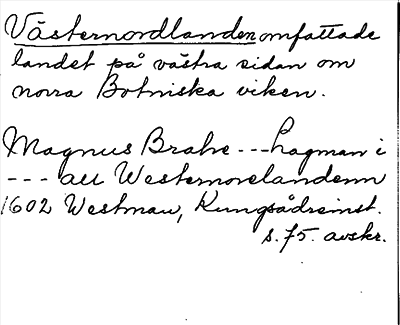 Västernordlanden omfattade
landet på västra sidan om
norra Botniska viken.
Magnus Brahe --- Lagman i
--- all Westernorelandenn
1602 Westman, Kungsådreinst.
s. 75. avskr.